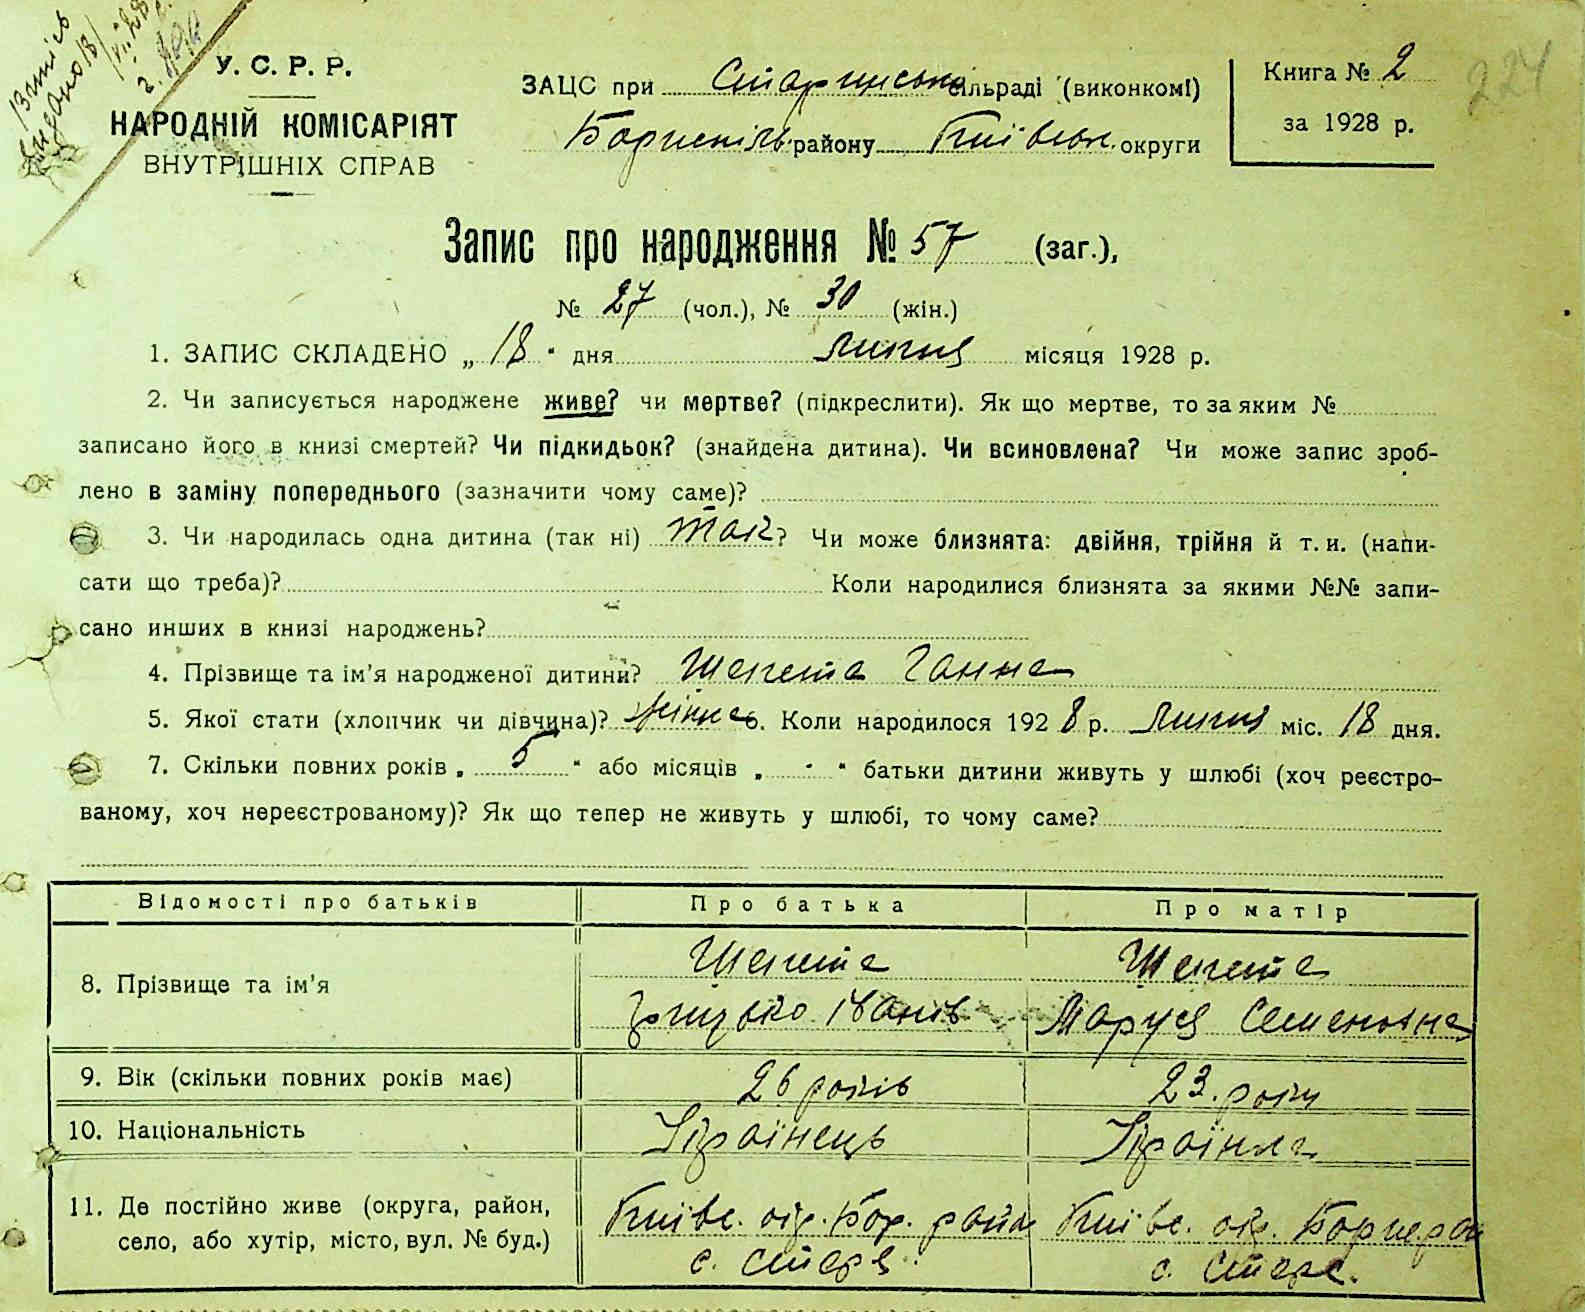 Витяг
видано 13/
VI. 28
У. С. Р. Р.
НАРОДНІЙ КОМІСАРІЯТ
ВНУТРІШНІХ СПРАВ
ЗАЦС при Старинській сільраді (виконкомі)
Бориспіль району Київськ. округи
Книга № 2
за 1928 р.
224
Запис про народження № 57 (заг.),
№ 27 (чол.), № 30 (жін.)
1. ЗАПИС СКЛАДЕНО „ 18 “ дня липня місяця 1928 р.
2. Чи записується народжене живе? чи мертве? (підкреслити). Як що мертве, то за яким №
записано його в книзі смертей? Чи підкидьок? (знайдена дитина). Чи всиновлена? Чи може запис зроб-
лено в заміну попереднього (зазначити чому саме)?
3. Чи народилась одна дитина (так ні) так? Чи може близнята: двійня, трійня й т. и. (напи-
сати що треба)? Коли народилися близнята за якими №№ запи-
сано инших в книзі народжень?
4. Прізвище та ім'я народженої дитини? Шепета Ганна
5. Якої стати (хлопчик чи дівчина)? жіноч 6. Коли народилося 1928 р. липня міс. 18 дня.
7. Скільки повних років „ 5 “ або місяців „ - “ батьки дитини живуть у шлюбі (хоч реєстро-
ваному, хоч нереєстрованому)? Як що тепер не живуть у шлюбі, то чому саме?
Відомості про батьків Про батька Про матір
8. Прізвище та ім'я Шепета Шепета
Грицько Іванів Маруся Семеновна
9. Вік (скільки повних років має) 26 років 23. роки
10. Національність Українець Українка
11. Де постійно живе (округа, район, Київс. окр. Бор. район Київс. окр. Борис. рай
село, або хутір, місто, вул. № буд.) с. Старе. с. Старе.